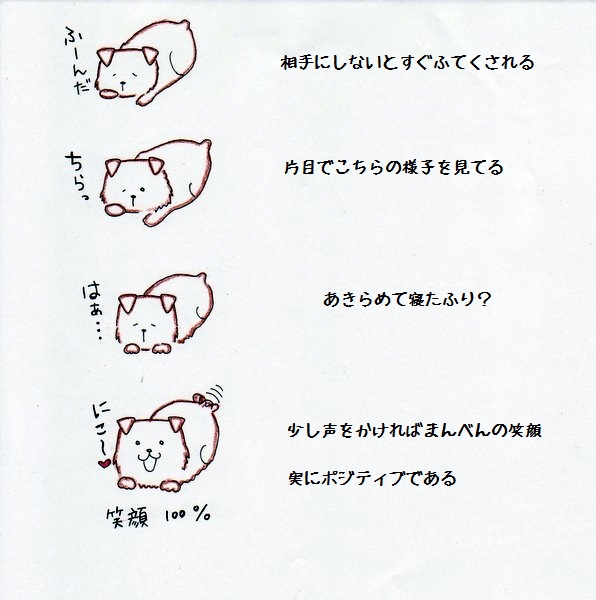 ふーんだ
相手にしないとすぐふてくされる
ちらっ
片目でこちらの様子を見てる
はぁ…
あきらめて寝たふり？
にこ～♥
少し声をかければまんべんの笑顔
実にポジティブである
笑顔 100%